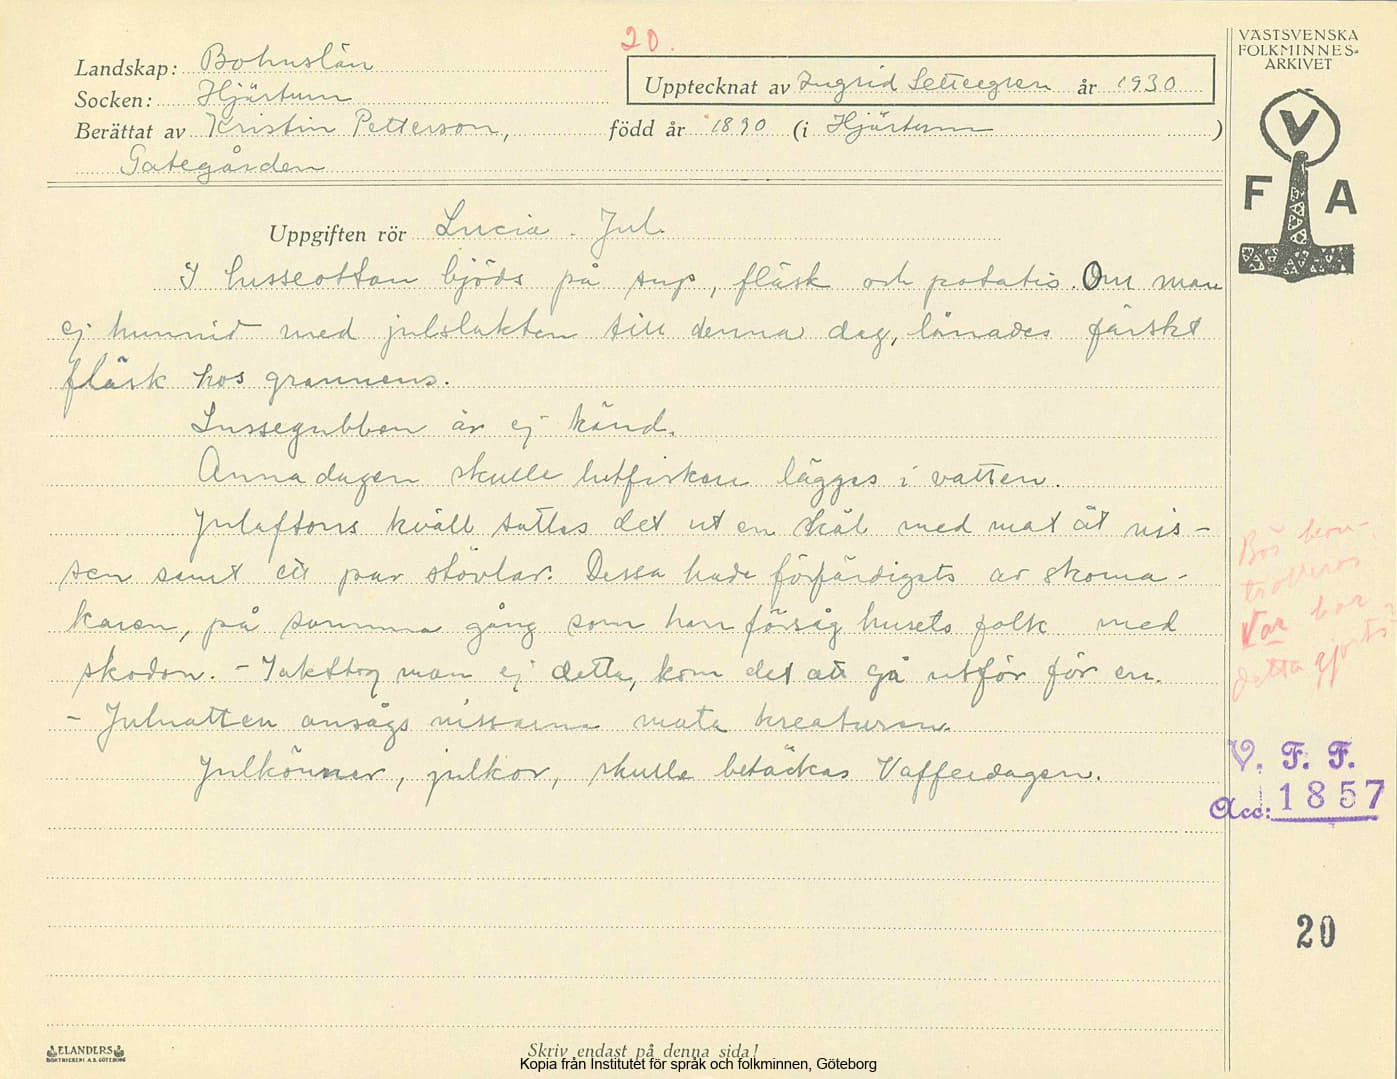 20.
VÄSTSVENSKA
FOLKMINNES-
ARKIVET
Landskap: Bohuslän
Socken: Hjärtum
Upptecknat av Ingrid år 1930
Berättat av Kristin Petterson, född år 1890 (i Hjärtum )
Gategården
V
F A
Uppgiften rör Lucia. Jul.
I lusseottan bjöds på sup, fläsk och potatis. Om man
ej hunnit med julslakten till denna dag, lånades färskt
fläsk hos grannens.
Lussegubben är ej känd.
Annadagen skulle lutfisken läggas i vatten.
Julaftons kväll sattes det ut en skål med mat åt nis-
sen samt ett par stövlar. Dessa hade förfärdigats av skoma-
karen, på samma gång som han försåg husets folk med
skodon. - Iakttog man ej detta, kom det att gå utför för en.
- Julnatten ansågs nissarna mata kreaturen.
Julkönner, julkor, skulle betäckas Vafferdagen.
Bör kon-
trolleras
Var har
detta gjorts?
V. F. F.
Acc: 1857
20
ELANDERS
BOKTRYCKERI A.B. GÖTEBORG
Skriv endast på denna sida!
Kopia från Institutet för språk och folkminnen, Göteborg